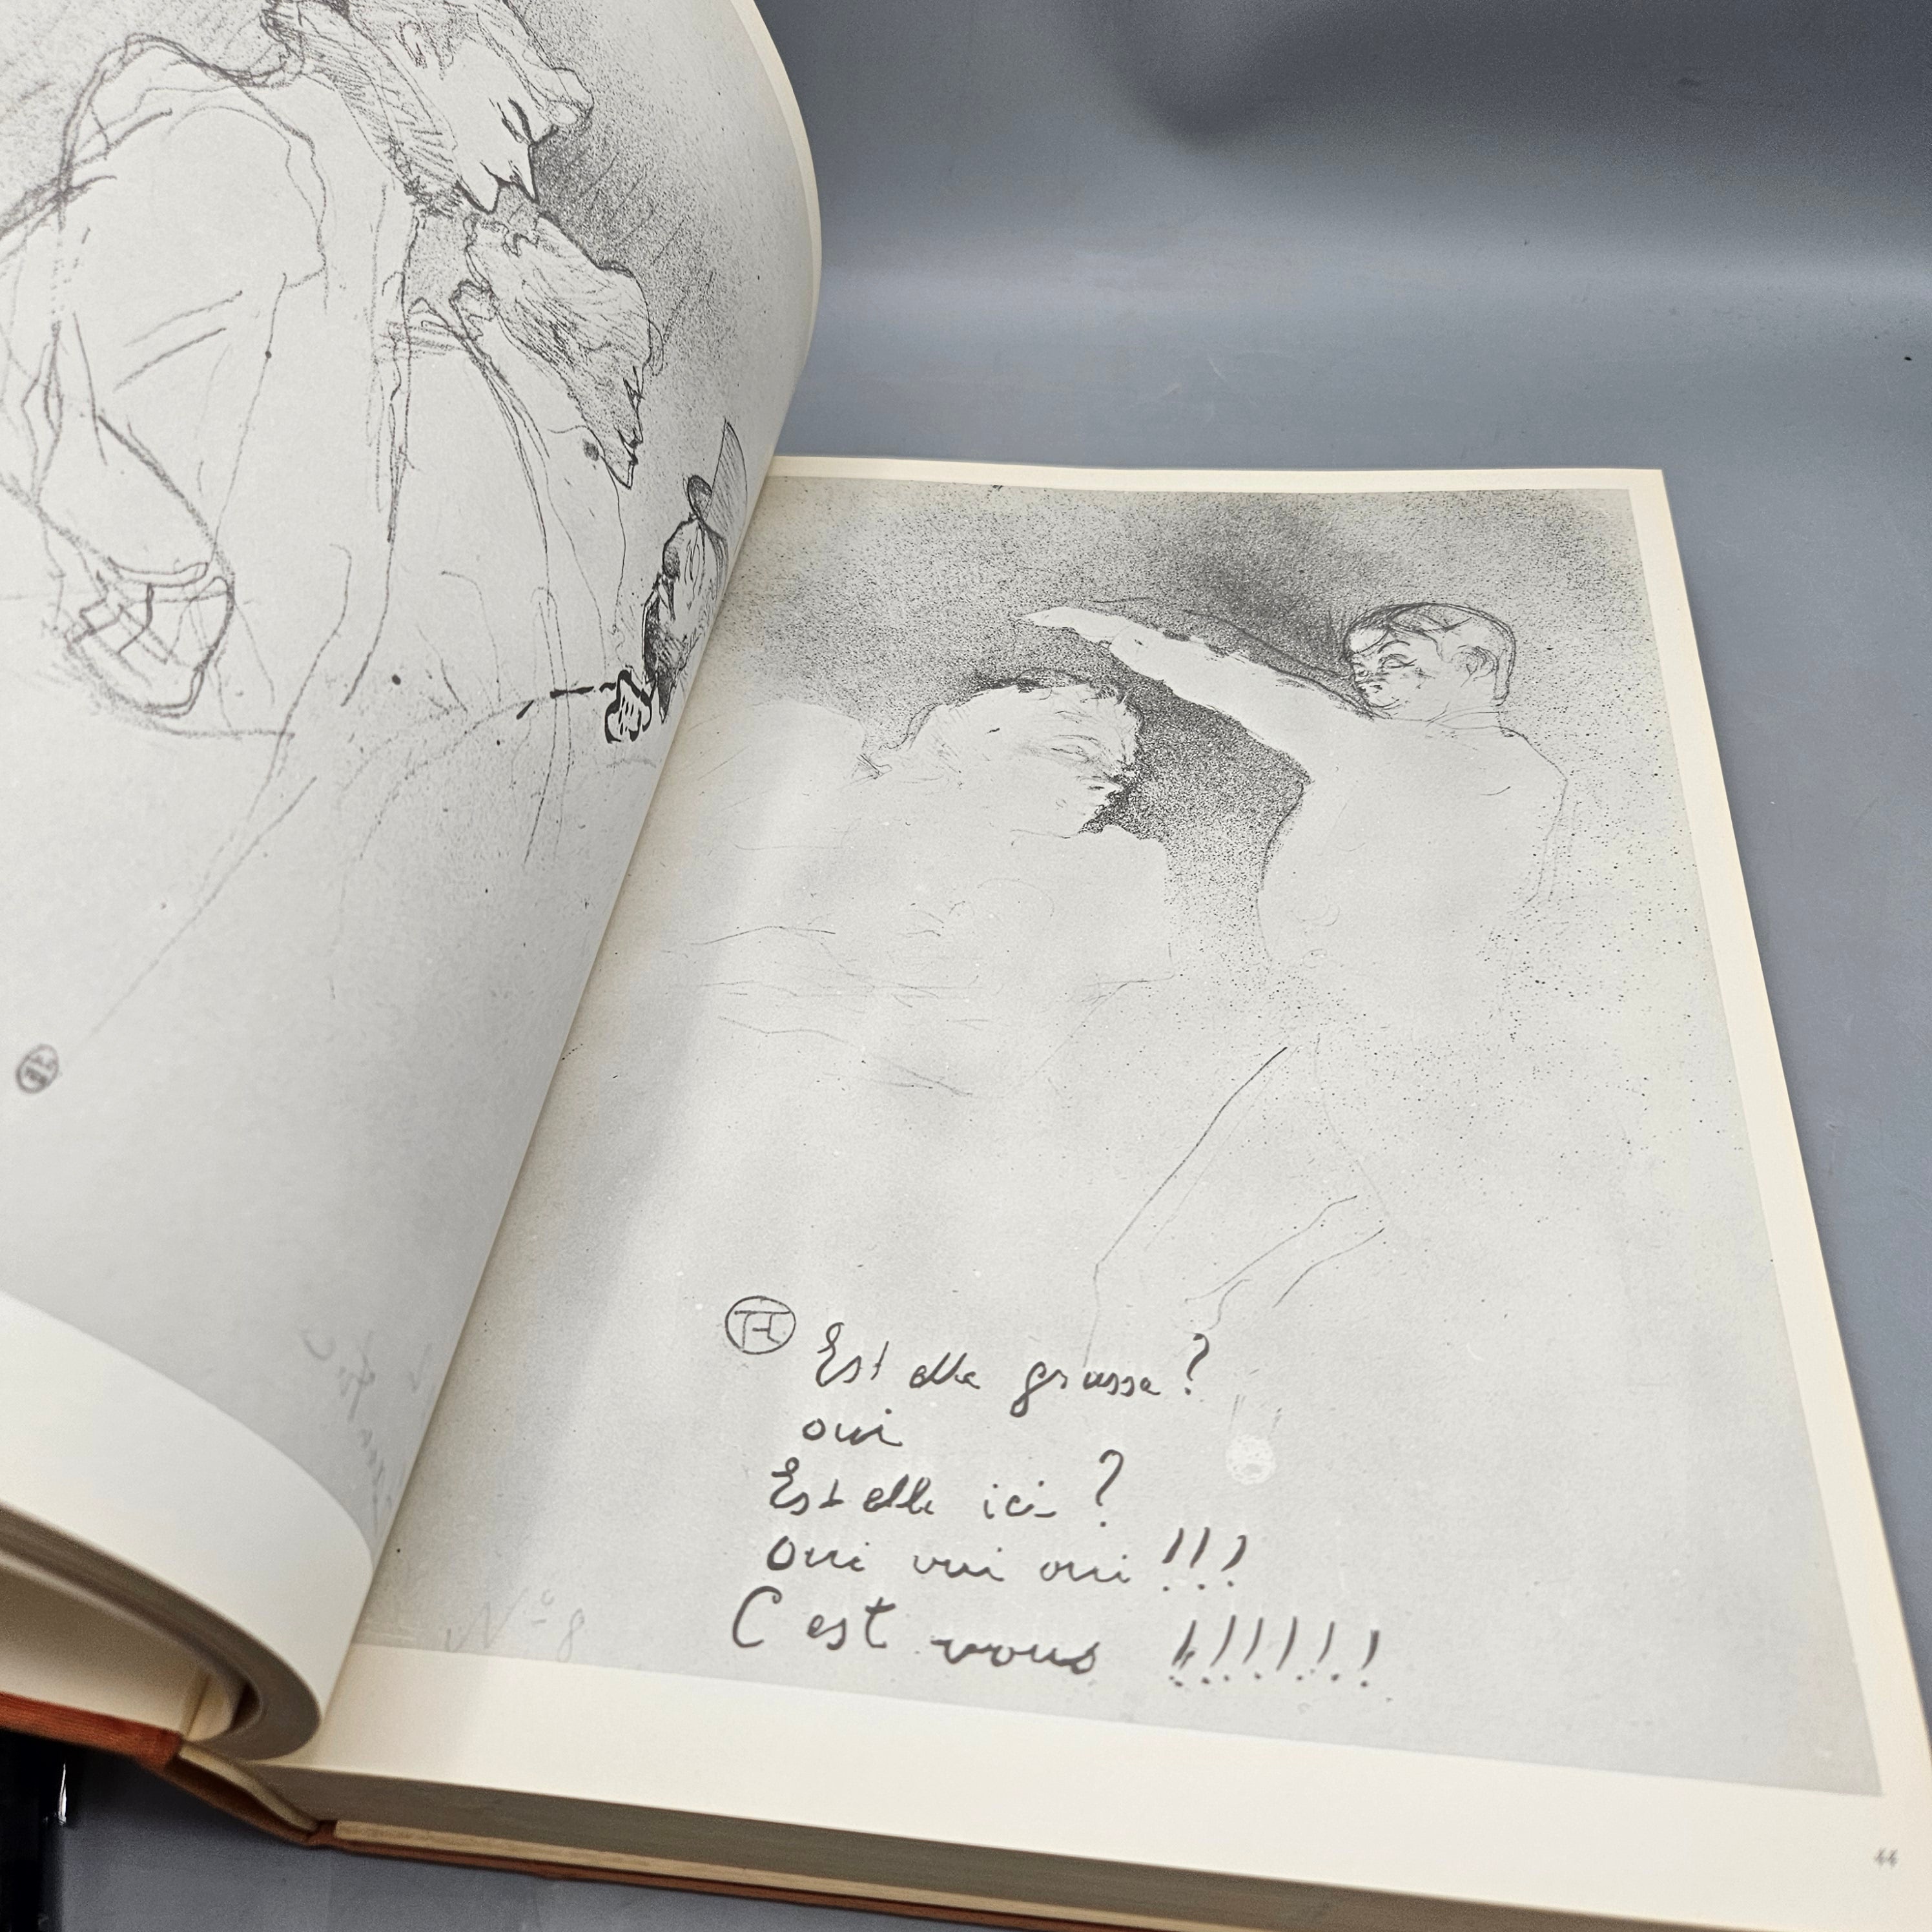 Est elle grasse ?
oui
Est elle ici ?
Oui oui oui !!!
C est vous !!!!!!
N° 8
44